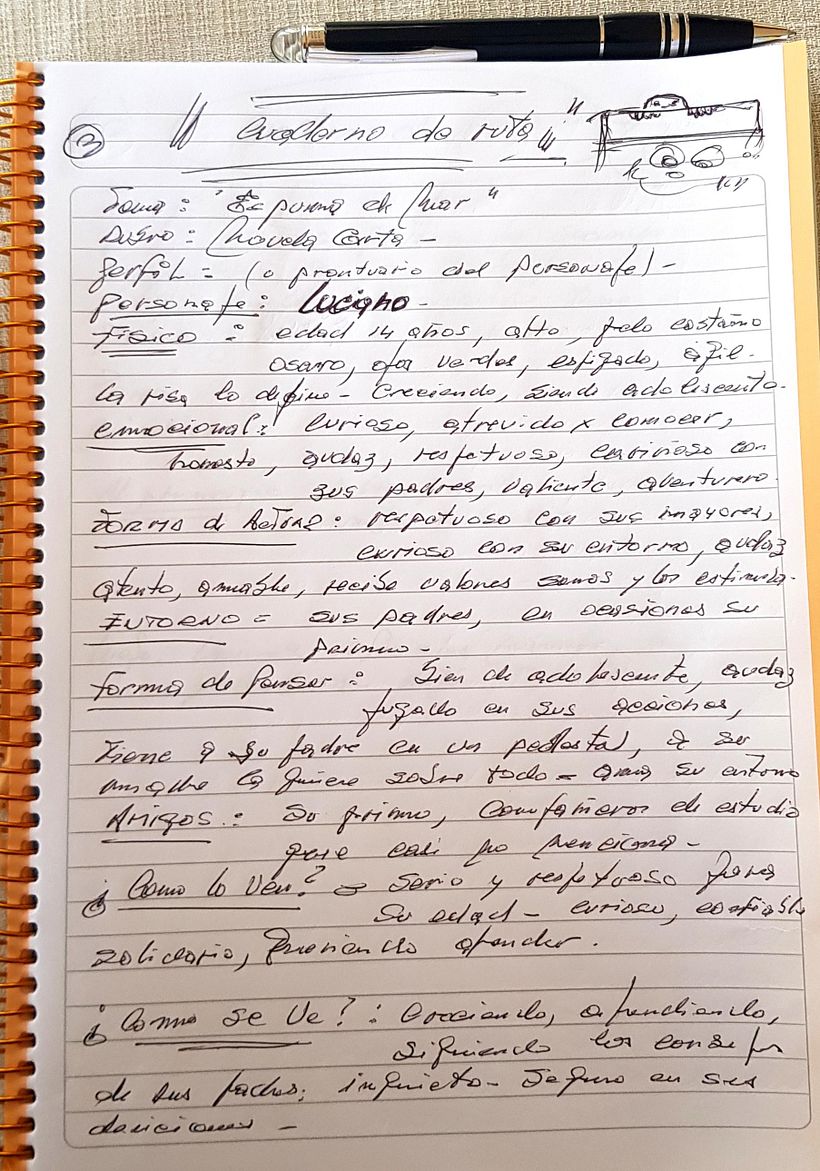 3
" Cuaderno de ruta "
Tema: "Espuma de Mar"
Dusro: Novela Corta -
Perfil = (o prontuario del personaje) -
Personaje: Luciano -
Físico: edad 14 años, alto, pelo castaño
oscuro, ojos verdes, espigado, ágil.
La risa lo define - Creciendo, siendo adolescente.
emocional: curioso, atrevido x conocer,
honesto, audaz, respetuoso, cariñoso con
sus padres, valiente, aventurero.
Forma de Actuar: respetuoso con sus mayores,
curioso con su entorno, audaz
atento, amable, recibe valores sanos y los estimula.
ENTORNO = sus padres, en ocasiones su
primo -
Forma de Pensar: Bien de adolescente, audaz
jugado en sus acciones,
Tiene a su padre en un pedestal, a su
madre la quiere sobre todo = ama su entorno
Amigos: Su primo, compañeros de estudio
que casi no menciona -
¿Como lo Ven? = Serio y respetuoso para
su edad - curioso, confiable
solidario, queriendo aprender.
¿Como se Ve?: Creciendo, aprendiendo,
siguiendo los consejos
de sus padres; inquieto - seguro en sus
decisiones -